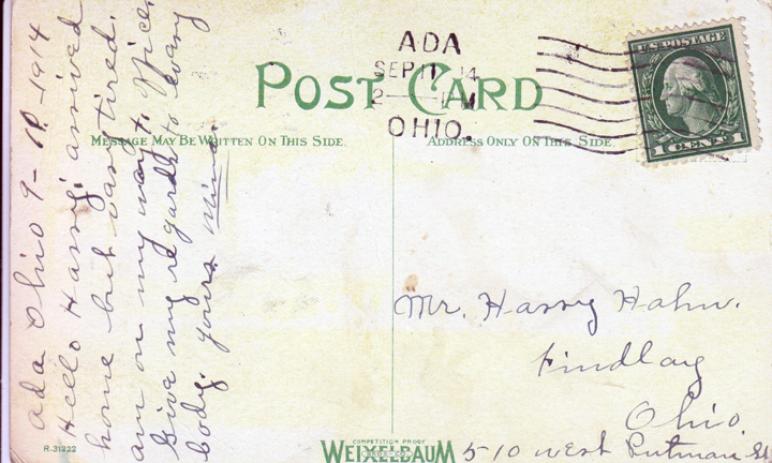 Ada Ohio 9-11-1914
Hello Harry, arrived
home but vary tired.
am on my way to office
Give my regards to evary
body. yours Mina.
POST CARD
MESSAGE MAY BE WRITTEN ON THIS SIDE.
ADDRESS ONLY ON THIS SIDE.
ADA
SEP 11 14
2 — 1 M
OHIO.
U.S. POSTAGE
1 CENT 1
Mr. Harry Hahn.
Findlay
Ohio.
510 west Putman St
R-31222
COMPETITION PROOF
WEIXELBAUM